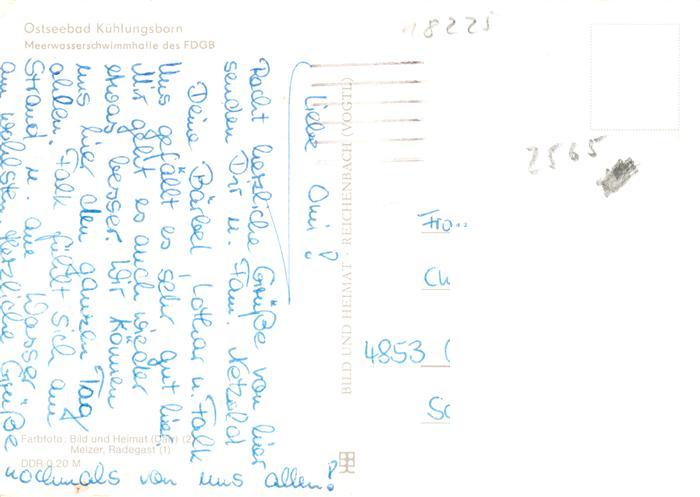 Ostseebad Kühlungsborn
Meerwasserschwimmhalle des FDGB
18225
2565
Liebe Omi!
Recht herzliche Grüße von hier
senden Dir u. Fam. Netzold
Deine Bärbel, Lothar u. Falk
Uns gefällt es sehr gut hier
Mir geht es auch wieder
etwas besser. Wir können
uns hier den ganzen Tag
aalen. Falk fühlt sich am
Strand u. am Wasser
am wohlsten. Herzliche Grüße
nochmals von uns allen!
BILD UND HEIMAT · REICHENBACH (VOGTL)
4853
Farbfoto: Bild und Heimat (2)
Melzer, Radegast (1)
DDR 0,20 M